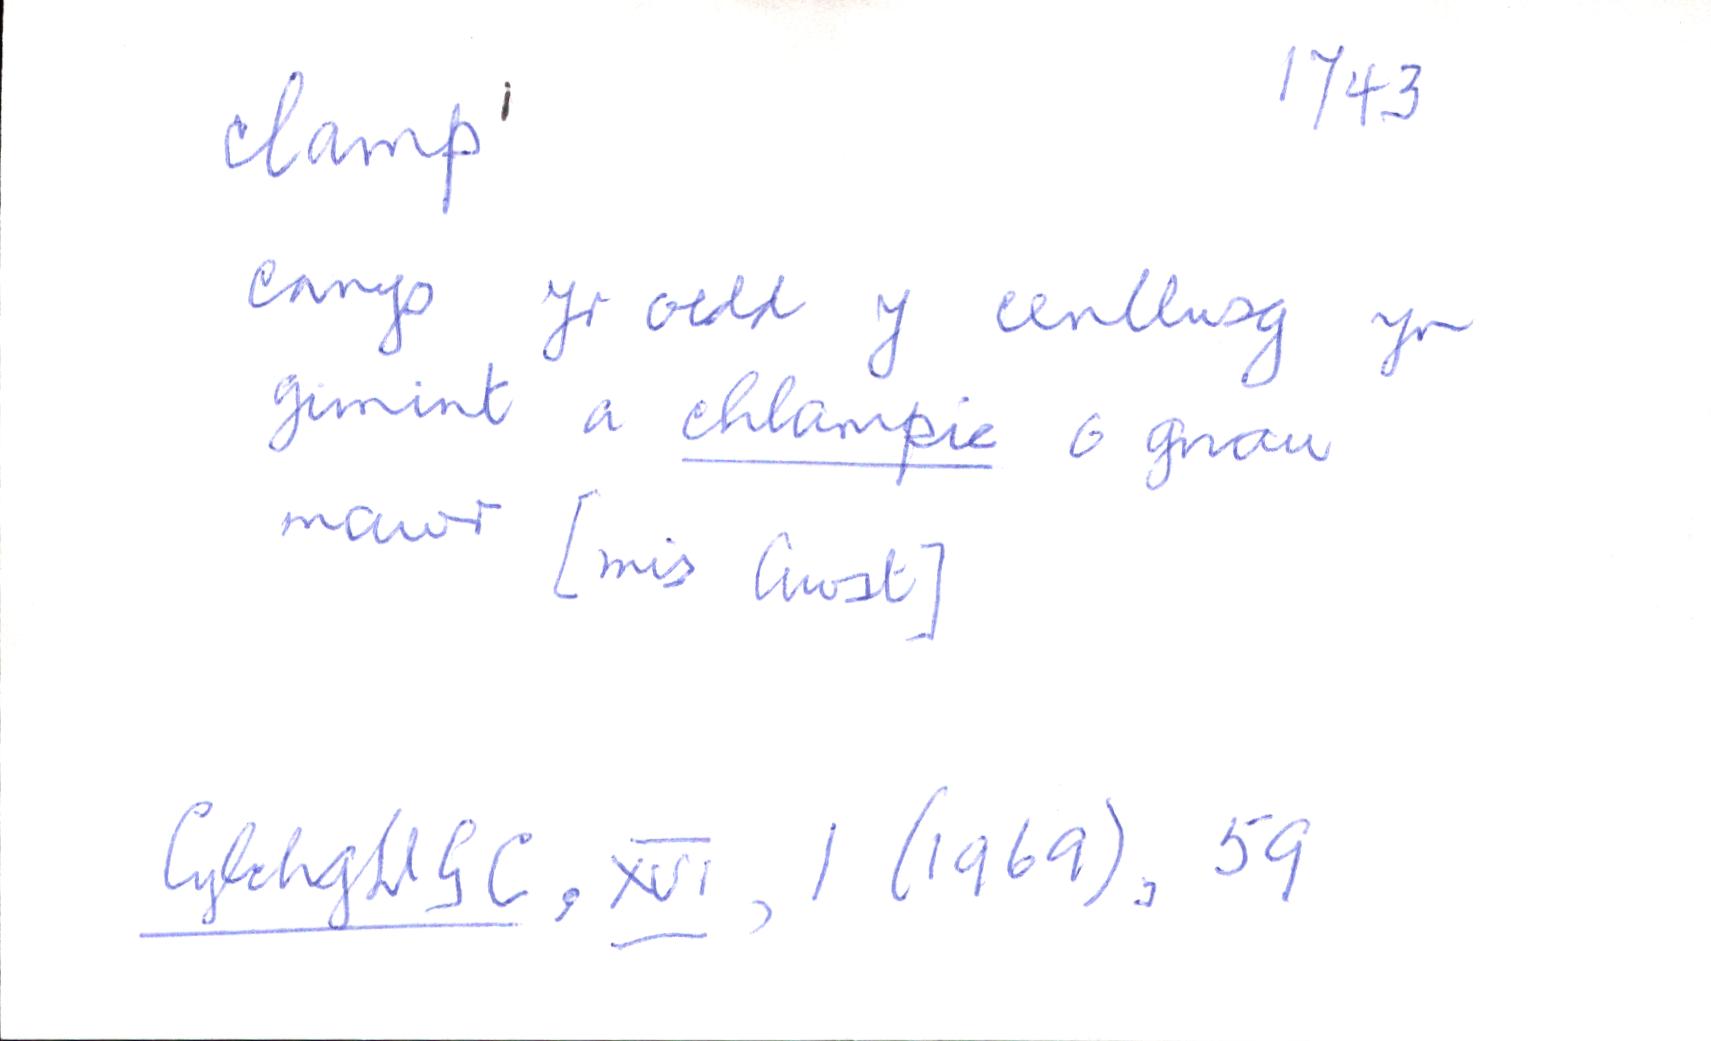 clamp¹ 1743
canys yr oedd y cenllusg yn
gimint a chlampie o gnau
mawr [mis Awst]
CylchgLlGC, XVI, 1 (1969), 59